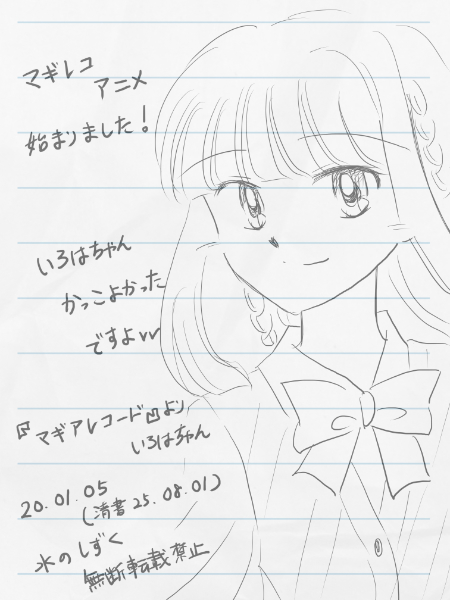 マギレコ
アニメ
始まりました!
いろはちゃん
かっこよかった
ですよvv
『マギアレコード』より
いろはちゃん
20.01.05
(清書25.08.01)
水のしずく
無断転載禁止